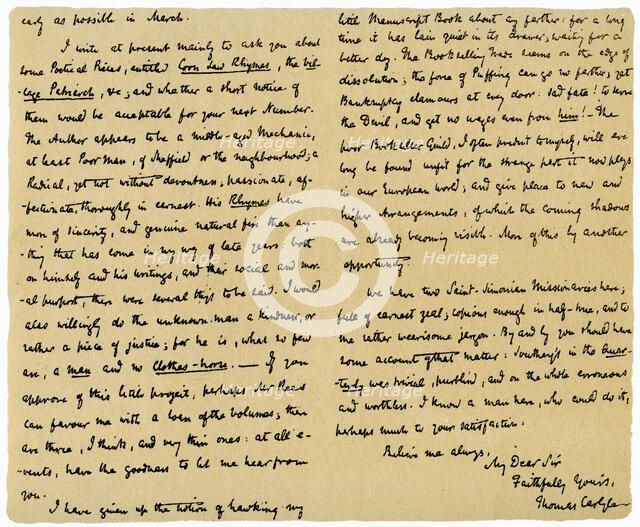 early as possible in March.
I write at present mainly to ask you about
some Poetical Pieces, entitled Corn Law Rhymes, the Vil-
lage Patriarch, &c; and whether a short notice of
them would be acceptable for your next Number.
The Author appears to be a middle-aged Mechanic,
at least Poor man, of Sheffield or the neighbourhood; a
Radical, yet not without devoutness; passionate, af-
fectionate, thoroughly in earnest. His Rhymes have
more of sincerity, and genuine natural fire than any-
thing that has come in my way of late years: both
on himself and his writings, and their social and mor-
al purport, there were several things to be said. I would
also willingly do the unknown man a kindness, or
rather a piece of justice; for he is, what so few
are, a man and no clothes-horse. — If you
approve of this little project, perhaps Mr Rees
can favour me with a loan of the volumes; there
are three, I think, and very thin ones: at all e-
vents, have the goodness to let me hear from
you.
I have given up the notion of hawking my
little Manuscript Book about any farther: for a long
time it has lain quiet in its drawer, waiting for a
better day. The Bookselling trade seems on the edge of
dissolution; the force of Puffing can go no farther; yet
Bankruptcy clamours at every door: sad fate! to serve
the Devil, and get no wages even from him! The
poor Bookseller Guild, I often predict to myself, will ere
long be found unfit for the strange part it now plays
in our European world; and give place to new and
higher arrangements, of which the coming shadows
are already becoming visible. More of this by another
opportunity.
We have two Saint-Simonian Missionaries here;
full of earnest zeal; copious enough in half-true, and to
me rather wearisome jargon. By and by you should have
some account of that matter: Southey's in the Quar-
terly was trivial, purblind, and on the whole erroneous
and worthless. I know a man here, who could do it,
perhaps much to your satisfaction.
Believe me always,
My Dear Sir
Faithfully Yours,
Thomas Carlyle
Heritage
Heritage
Heritage
Heritage
Heritage
Heritage